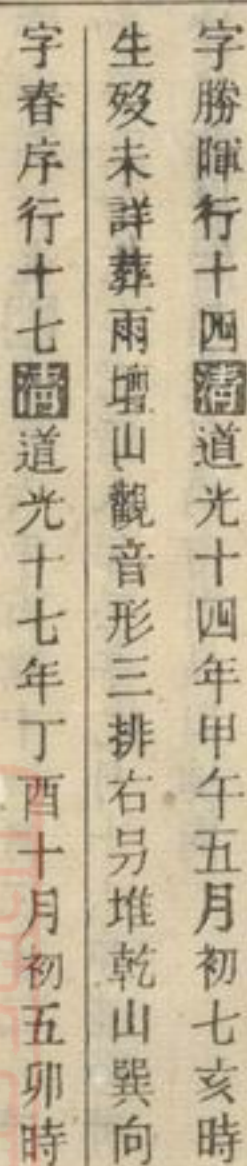 字勝暉行十四清道光十四年甲午五月初七亥時
生殁未詳葬雨壇山觀音形三排右另堆乾山巽向
字春序行十七清道光十七年丁酉十月初五卯時